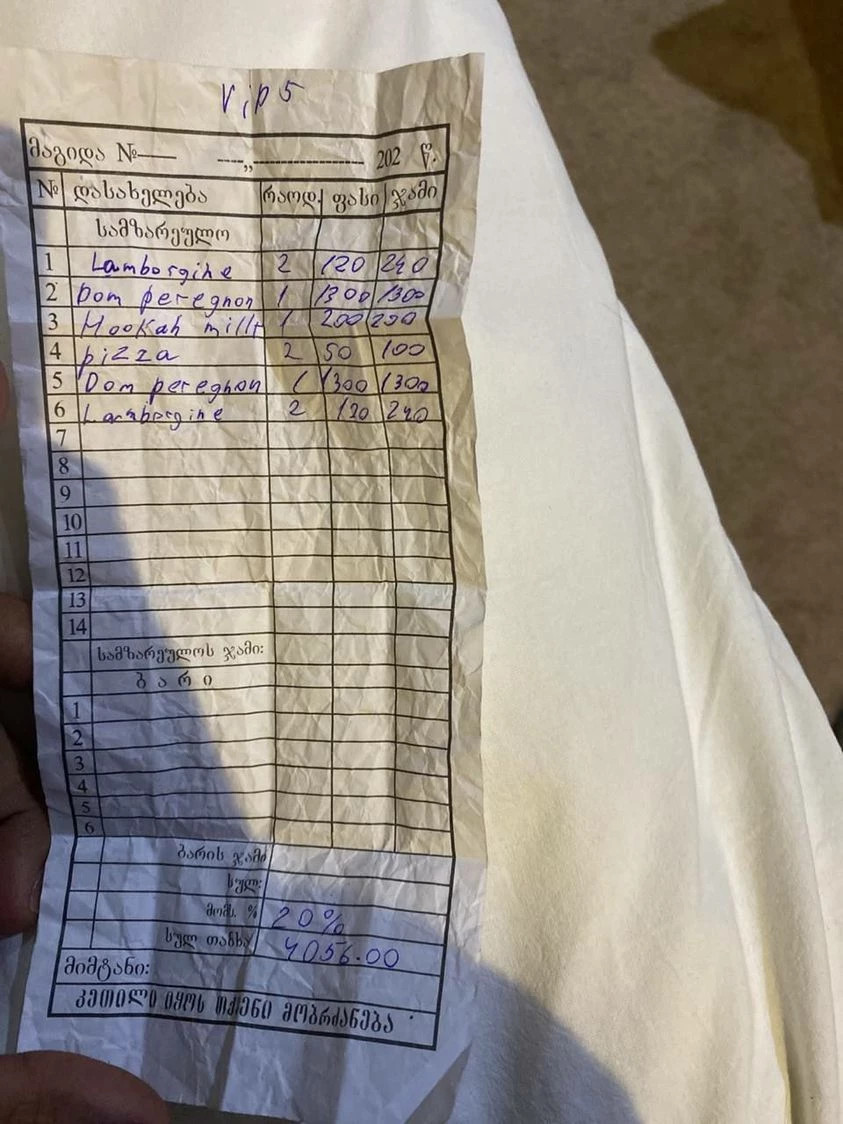 Vip 5
მაგიდა № 202 წ.
№ დასახელება რაოდ. ფასი ჯამი
სამზარეულო
1 Lamborgine 2 120 240
2 Dom peregnon 1 1300 1300
3 Hookah millt 1 200 200
4 pizza 2 50 100
5 Dom peregnon 1 1300 1300
6 Lamborgine 2 120 240
7
8
9
10
11
12
13
14
სამზარეულოს ჯამი:
ბარი
1
2
3
4
5
6
ბარის ჯამი
სულ:
მომს. % 20%
სულ თანხა 4056.00
მიმტანი:
კეთილი იყოს თქვენი მობრძანება